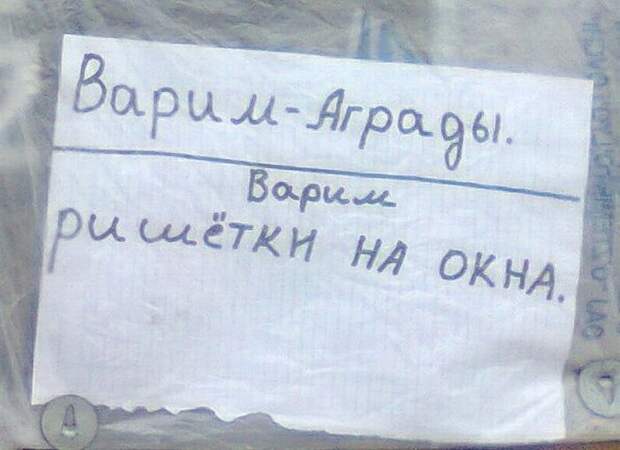 Варим-Аграды.
Варим
ришётки на окна.